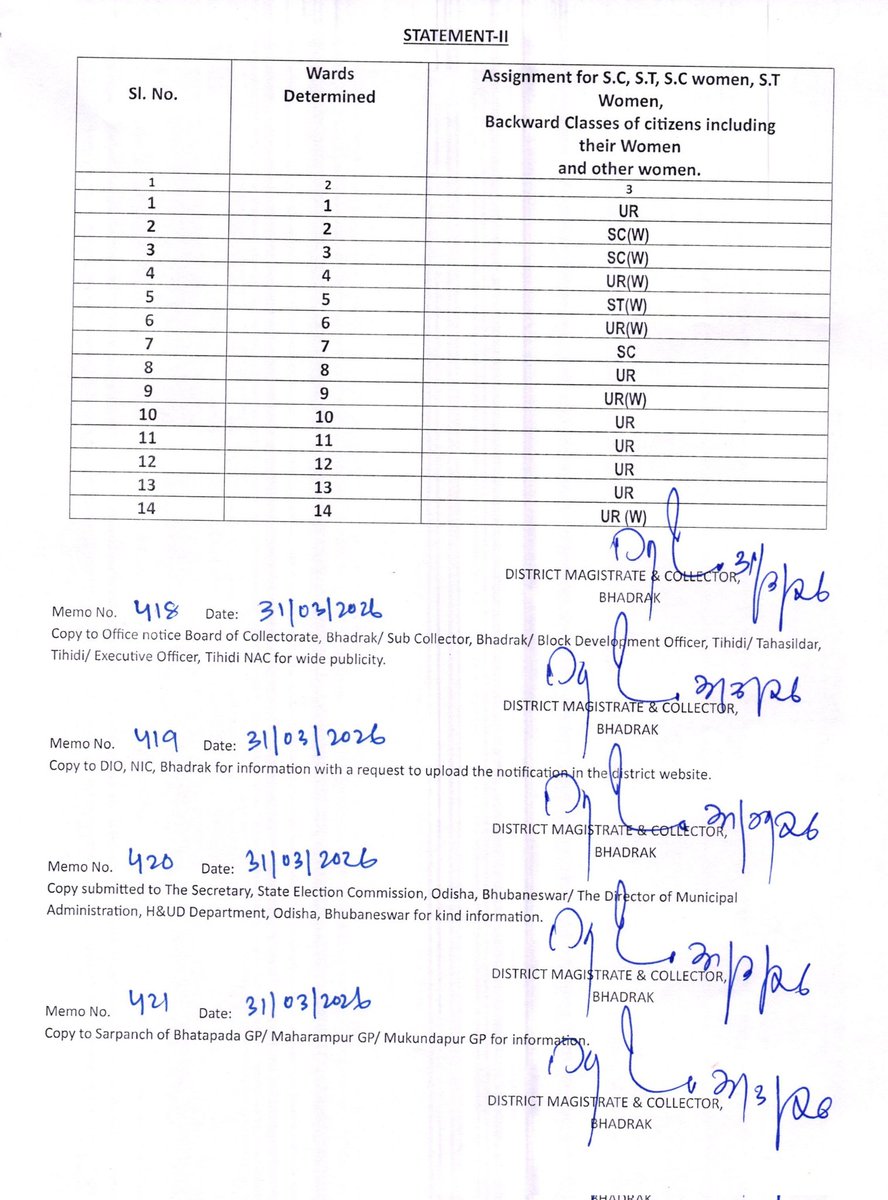 STATEMENT-II
Sl. No. Wards Determined Assignment for S.C, S.T, S.C women, S.T Women, Backward Classes of citizens including their Women and other women.
1 2 3
1 1 UR
2 2 SC(W)
3 3 SC(W)
4 4 UR(W)
5 5 ST(W)
6 6 UR(W)
7 7 SC
8 8 UR
9 9 UR(W)
10 10 UR
11 11 UR
12 12 UR
13 13 UR
14 14 UR (W)
31/3/26
DISTRICT MAGISTRATE & COLLECTOR,
BHADRAK
Memo No. 418 Date: 31/03/2026
Copy to Office notice Board of Collectorate, Bhadrak/ Sub Collector, Bhadrak/ Block Development Officer, Tihidi/ Tahasildar,
Tihidi/ Executive Officer, Tihidi NAC for wide publicity.
DISTRICT MAGISTRATE & COLLECTOR,
BHADRAK
Memo No. 419 Date: 31/03/2026
Copy to DIO, NIC, Bhadrak for information with a request to upload the notification in the district website.
DISTRICT MAGISTRATE & COLLECTOR,
BHADRAK
Memo No. 420 Date: 31/03/2026
Copy submitted to The Secretary, State Election Commission, Odisha, Bhubaneswar/ The Director of Municipal
Administration, H&UD Department, Odisha, Bhubaneswar for kind information.
DISTRICT MAGISTRATE & COLLECTOR,
BHADRAK
Memo No. 421 Date: 31/03/2026
Copy to Sarpanch of Bhatapada GP/ Maharampur GP/ Mukundapur GP for information.
DISTRICT MAGISTRATE & COLLECTOR,
BHADRAK
BHADRAK